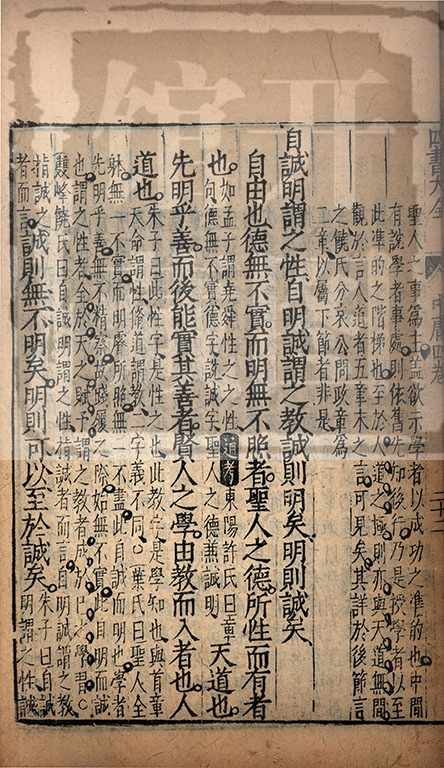 聖人之事為主蓋欲示學者以成功之準的也中間
有說學者事處則依舊先知後行乃是授學者以至
此準的之階梯也至於人道之極則亦與天道無間
觀於言人道者五章末之言可見矣其詳於後節言
之饒氏分哀公問政章為
二章以屬下節者非是
自誠明謂之性自明誠謂之教誠則明矣明則誠矣
自由也德無不實而明無不照者聖人之德所性而有者
也如孟子謂堯舜性之之性
句德無不實德字說誠字聖人之德兼誠明
通考東陽許氏曰章
天道也人
先明乎善而後能實其善者賢人之學由教而入者也人
道也朱子曰此性字是性之也此教字是學知也與首章
天命謂性脩道謂教二字義不同○葉氏曰聖人全
體無一不實而明睿所照無一不盡此自誠而明也學者
先明乎善無不精察故踐履之際始無不實此自明而誠
也謂之性者全於天之賦予謂之教者成於己之學習○
雙峰饒氏曰自誠明謂之性指誠者而言自明誠謂之教
指誠之者而言誠則無不明矣明則可以至於誠矣朱子曰自誠
明謂之性誠